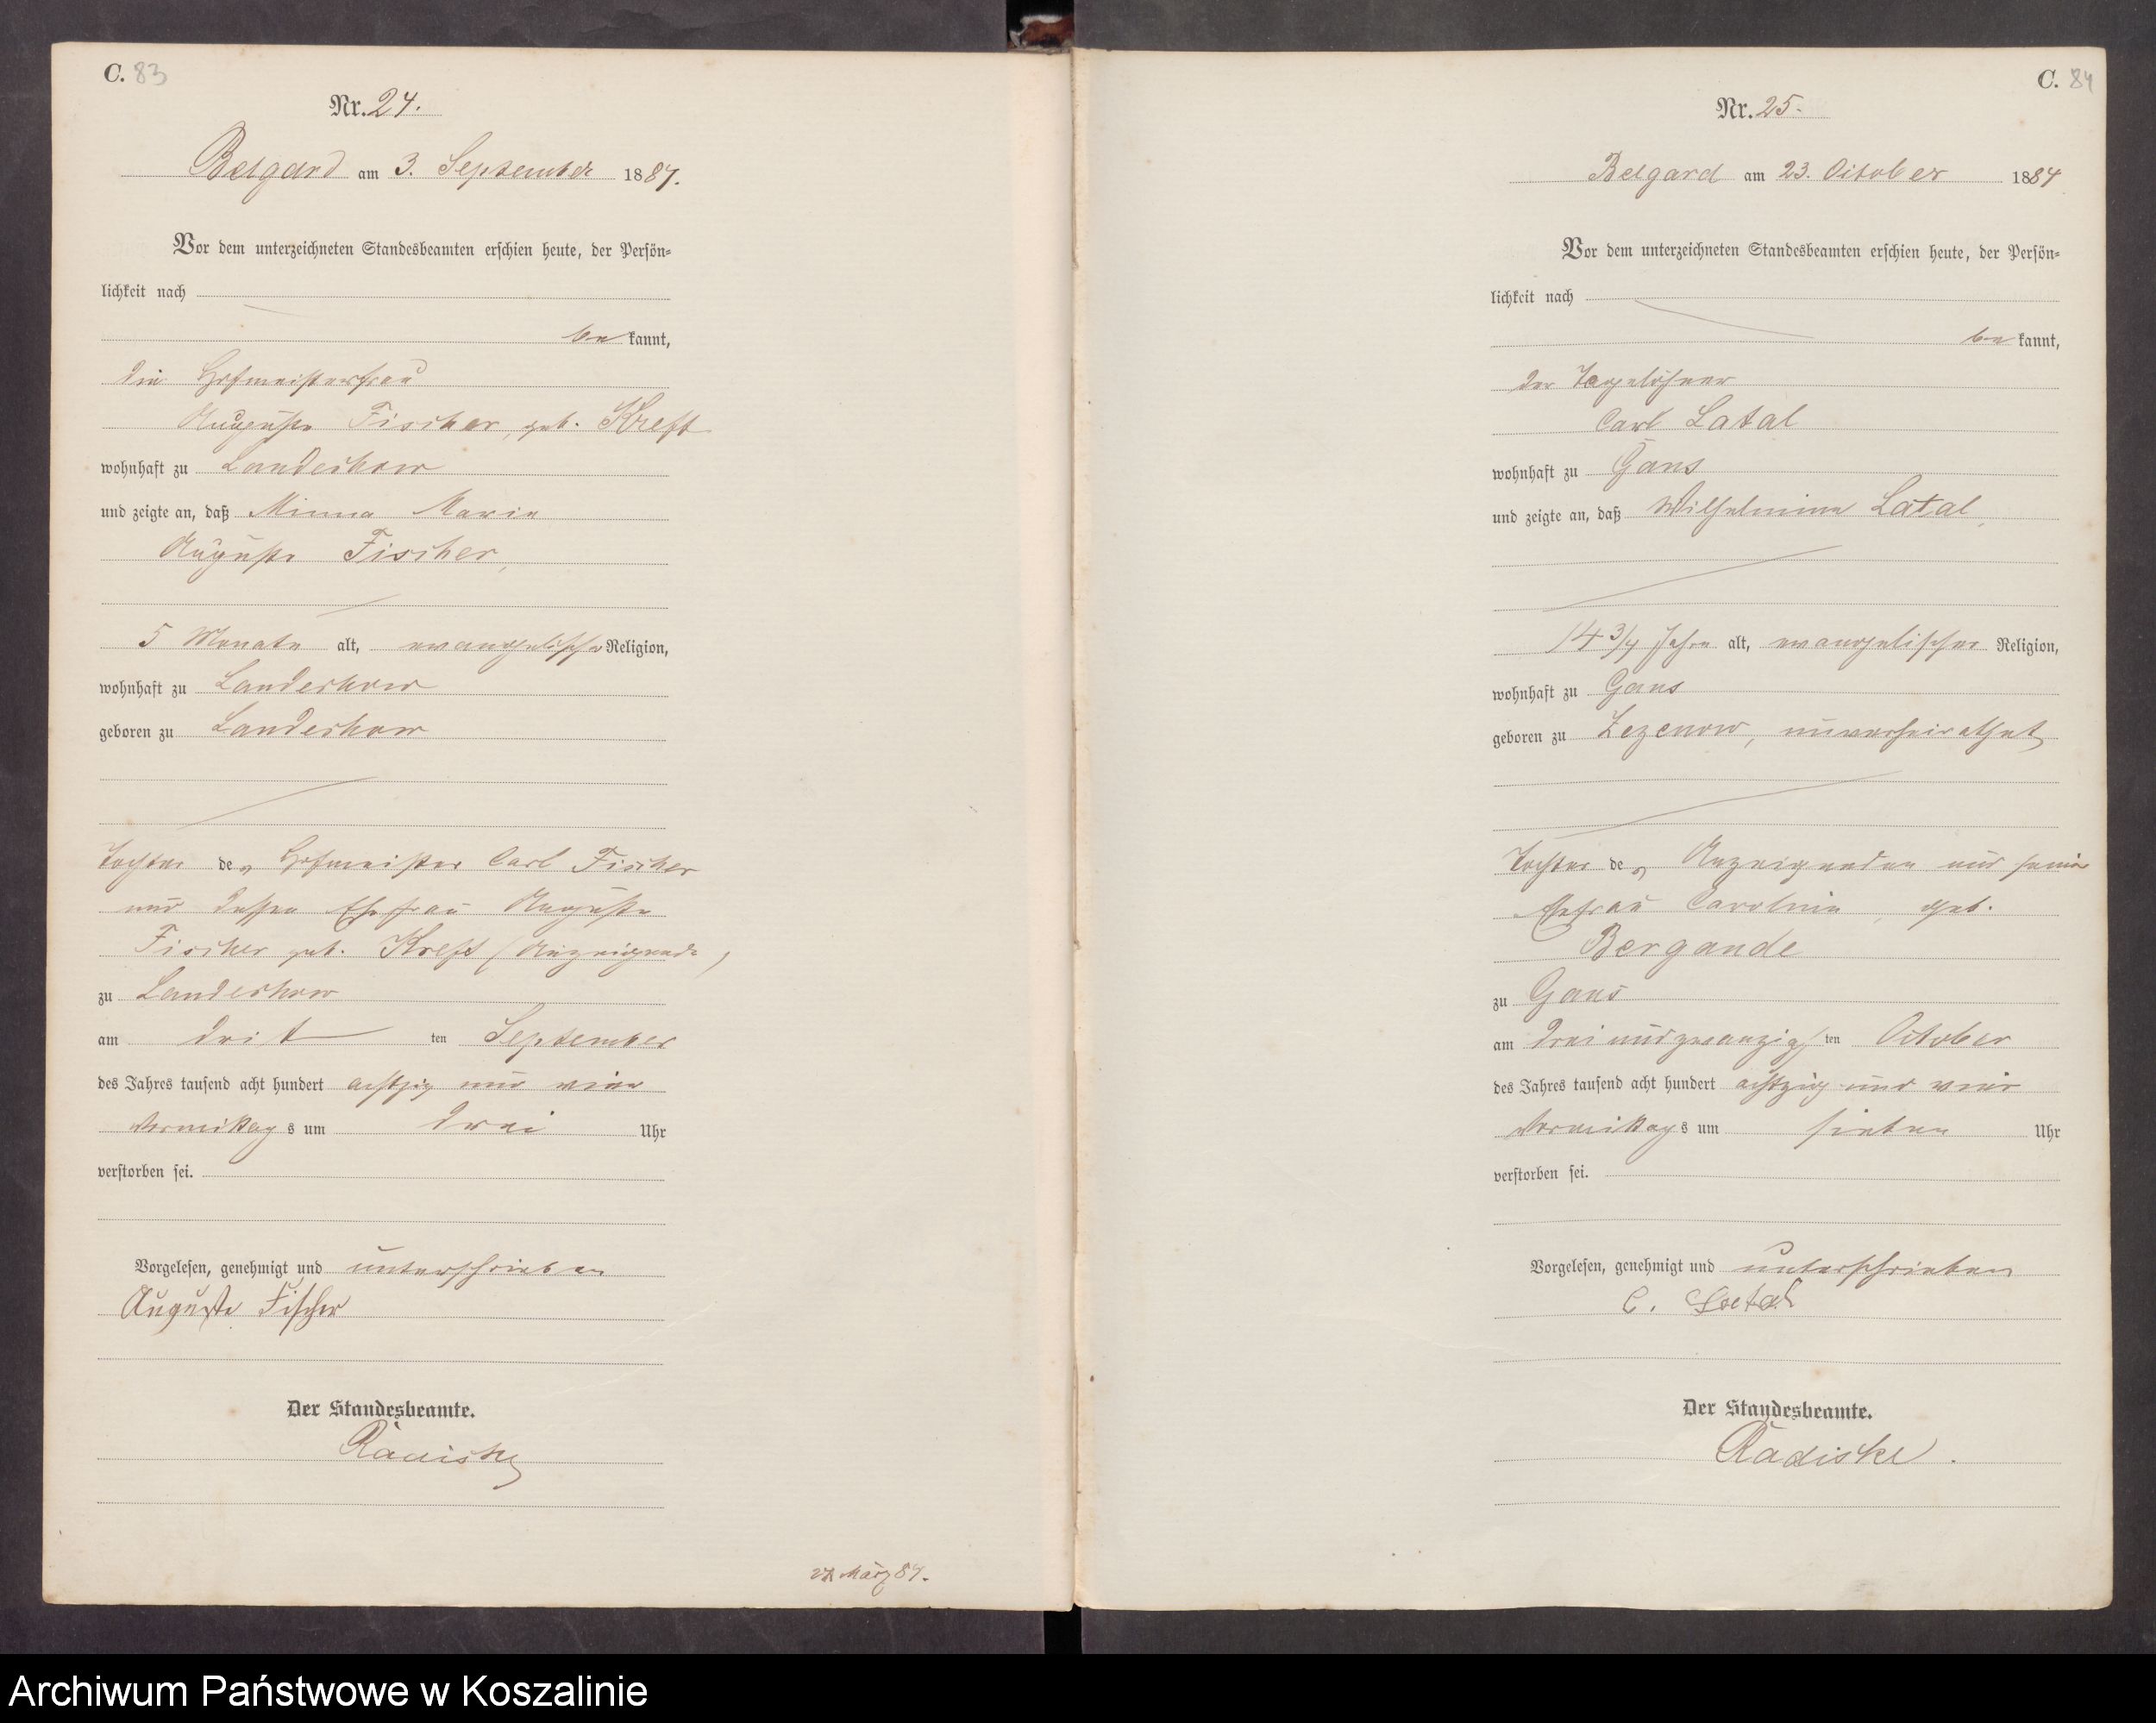 C. 83
Nr. 24.
Belgard am 3. September 1884.
Vor dem unterzeichneten Standesbeamten erschien heute, der Persön-
lichkeit nach
be kannt,
die Hofmeisterfrau
Auguste Fischer, geb. Kreft
wohnhaft zu Landechow
und zeigte an, daß Minna Marie
Auguste Fischer,
5 Monate alt, evangelischer Religion,
wohnhaft zu Landechow
geboren zu Landechow
Tochter des Hofmeister Carl Fischer
und dessen Ehefrau Auguste
Fischer geb. Kreft (Anzeigende)
zu Landechow
am drit ten September
des Jahres tausend acht hundert achtzig und vier
Vormittag s um drei Uhr
verstorben sei.
Vorgelesen, genehmigt und unterschrieben
Auguste Fischer
Der Standesbeamte.
Radiske
27 März 84.
C. 84
Nr. 25.
Belgard am 23. October 1884
Vor dem unterzeichneten Standesbeamten erschien heute, der Persön-
lichkeit nach
be kannt,
der Tagelöhner
Carl Latal
wohnhaft zu Gans
und zeigte an, daß Wilhelmine Latal,
14 3/4 Jahre alt, evangelischer Religion,
wohnhaft zu Gans
geboren zu Zezenow, unverheirathet
Tochter des Anzeigenden und seiner
Ehefrau Caroline, geb.
Bergande
zu Gans
am drei und zwanzigs ten October
des Jahres tausend acht hundert achtzig und vier
Vormittag s um sieben Uhr
verstorben sei.
Vorgelesen, genehmigt und unterschrieben
C. Latal
Der Standesbeamte.
Radiske.
Archiwum Państwowe w Koszalinie